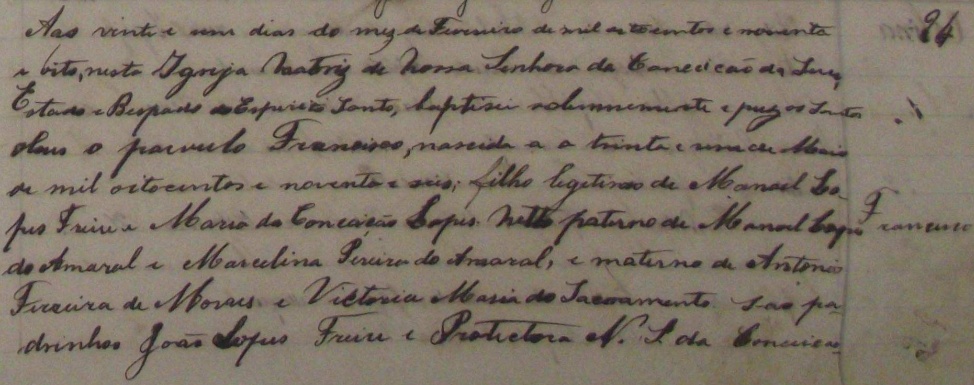 Aos vinte e um dias do mez de Fevereiro de mil oitocentos e noventa
e oito, nesta Igreja Matriz de Nossa Senhora da Conceicão da Serra,
Estado e Bispado do Espirito Santo, baptisei solemnemente e puz os Santos
oleos o parvulo Francisco, nascido a a trinta e um de Maio
de mil oitocentos e noventa e seis; filho legitimo de Manoel Lo-
pes Freire e Maria da Conceição Lopes. Netto paterno de Manoel Lopes
do Amaral e Marcelina Pereira do Amaral, e materno de Antonio
Ferreira de Moraes e Victoria Maria do Sacramento. São pa-
drinhos João Lopes Freire e Protectora N. S. da Conceicão
24
Francisco